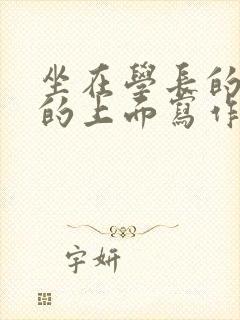 坐在學長的
的上面寫作
宇妍